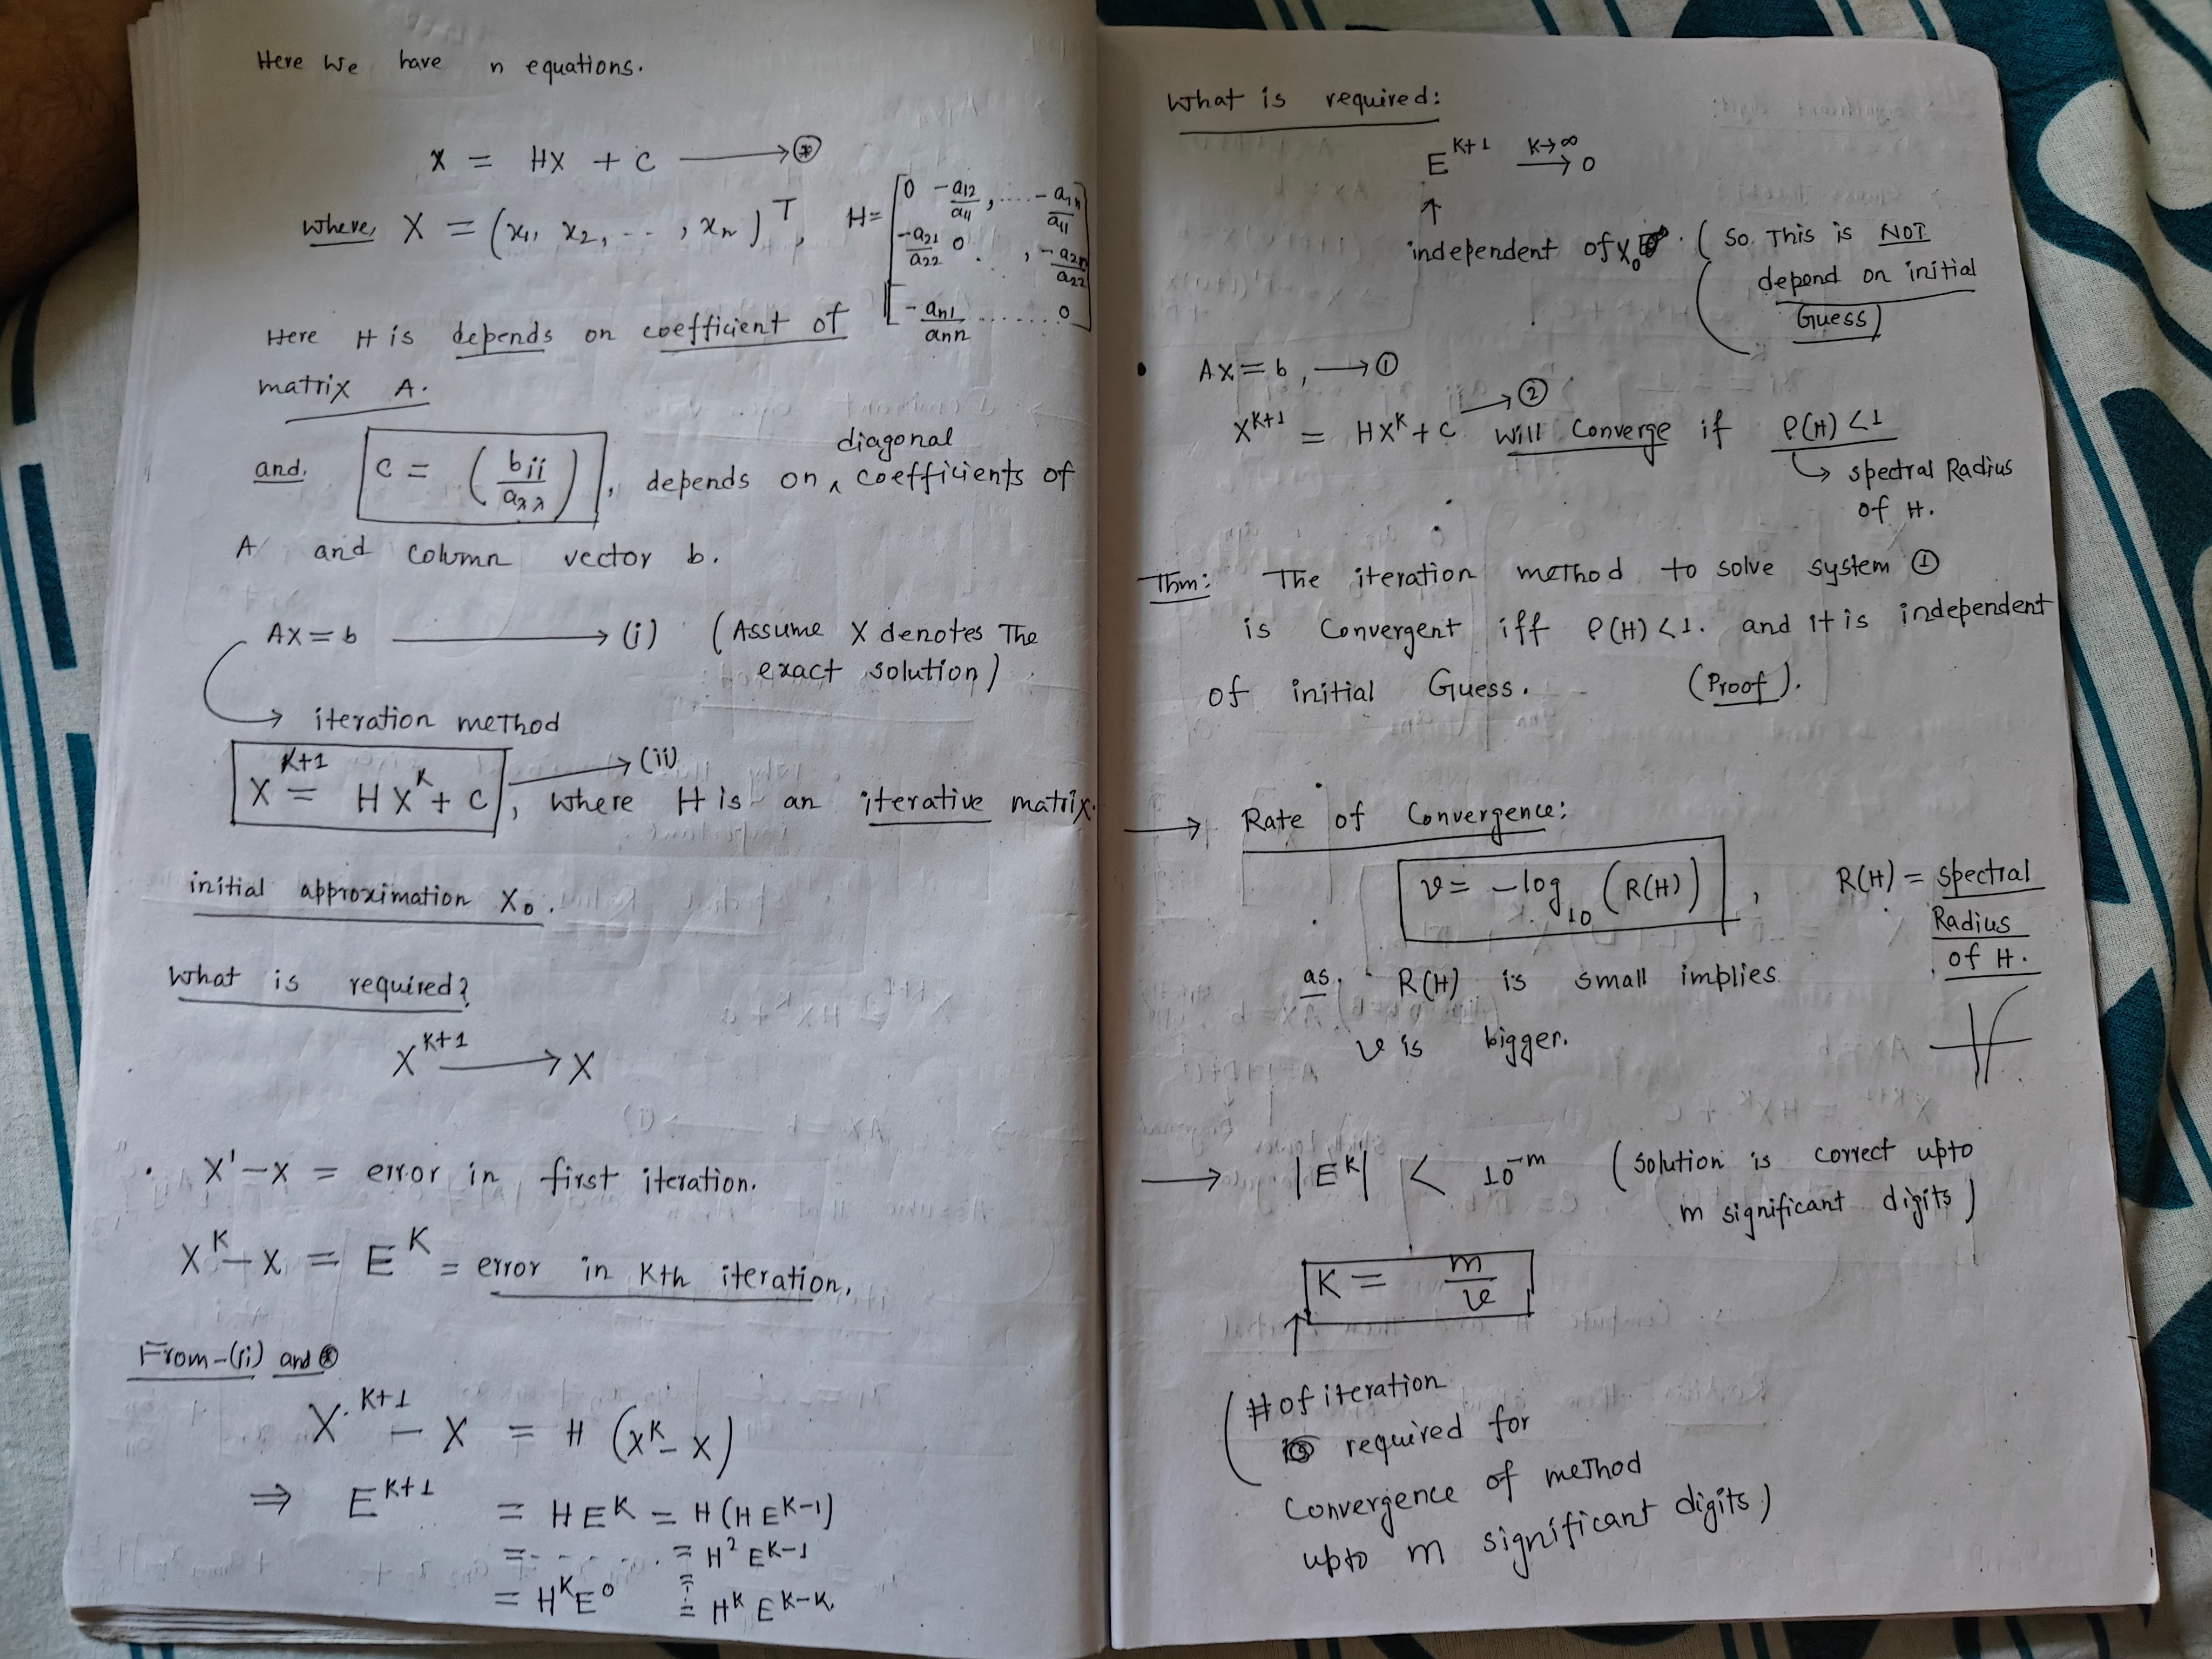 Here We have n equations.
X = HX + C ⟶ (*)
where, X = (x1, x2, ... , xn)^T, H = [0 -a12/a11, ..... -a1n/a11
-a21/a22 0 . , -a2n/a22
-an1/ann ....... 0]
Here H is depends on coefficient of
matrix A.
diagonal
and, C = (bii/aλλ), depends on ^ coefficients of
A and column vector b.
AX = b ⟶ (i) (Assume X denotes The
exact solution)
→ iteration method
X^{K+1} = HX^K + C, ⟶ (ii)
where H is an iterative matrix.
initial approximation X0.
What is required?
X^{K+1} ⟶ X
. X' - X = error in first iteration.
X^K - X = E^K = error in Kth iteration.
From-(ii) and (*)
X^{K+1} - X = H (X^K - X)
⇒ E^{K+1} = HE^K = H(HE^{K-1})
= - - - - . = H^2 E^{K-1}
= H^K E^0 ⋮ = H^K E^{K-K}
What is required:
E^{K+1} ⟶ 0 K→∞
↑
independent of X0. (So. This is NOT
depend on initial
Guess)
• AX = b, ⟶ ①
X^{K+1} = HX^K + C ⟶ ② will Converge if ρ(H) < 1
↳ spectral Radius
of H.
Thm: The iteration method to solve system ①
is Convergent iff ρ(H) < 1. and it is independent
of initial Guess. (Proof).
→ Rate of Convergence:
ν = -log10 (R(H)), R(H) = spectral
Radius
of H.
as. R(H) is small implies
ν is bigger.
→ |E^K| < 10^{-m} (solution is correct upto
m significant digits)
K = m/ν
↑
(# of iteration
required for
Convergence of method
upto m significant digits)